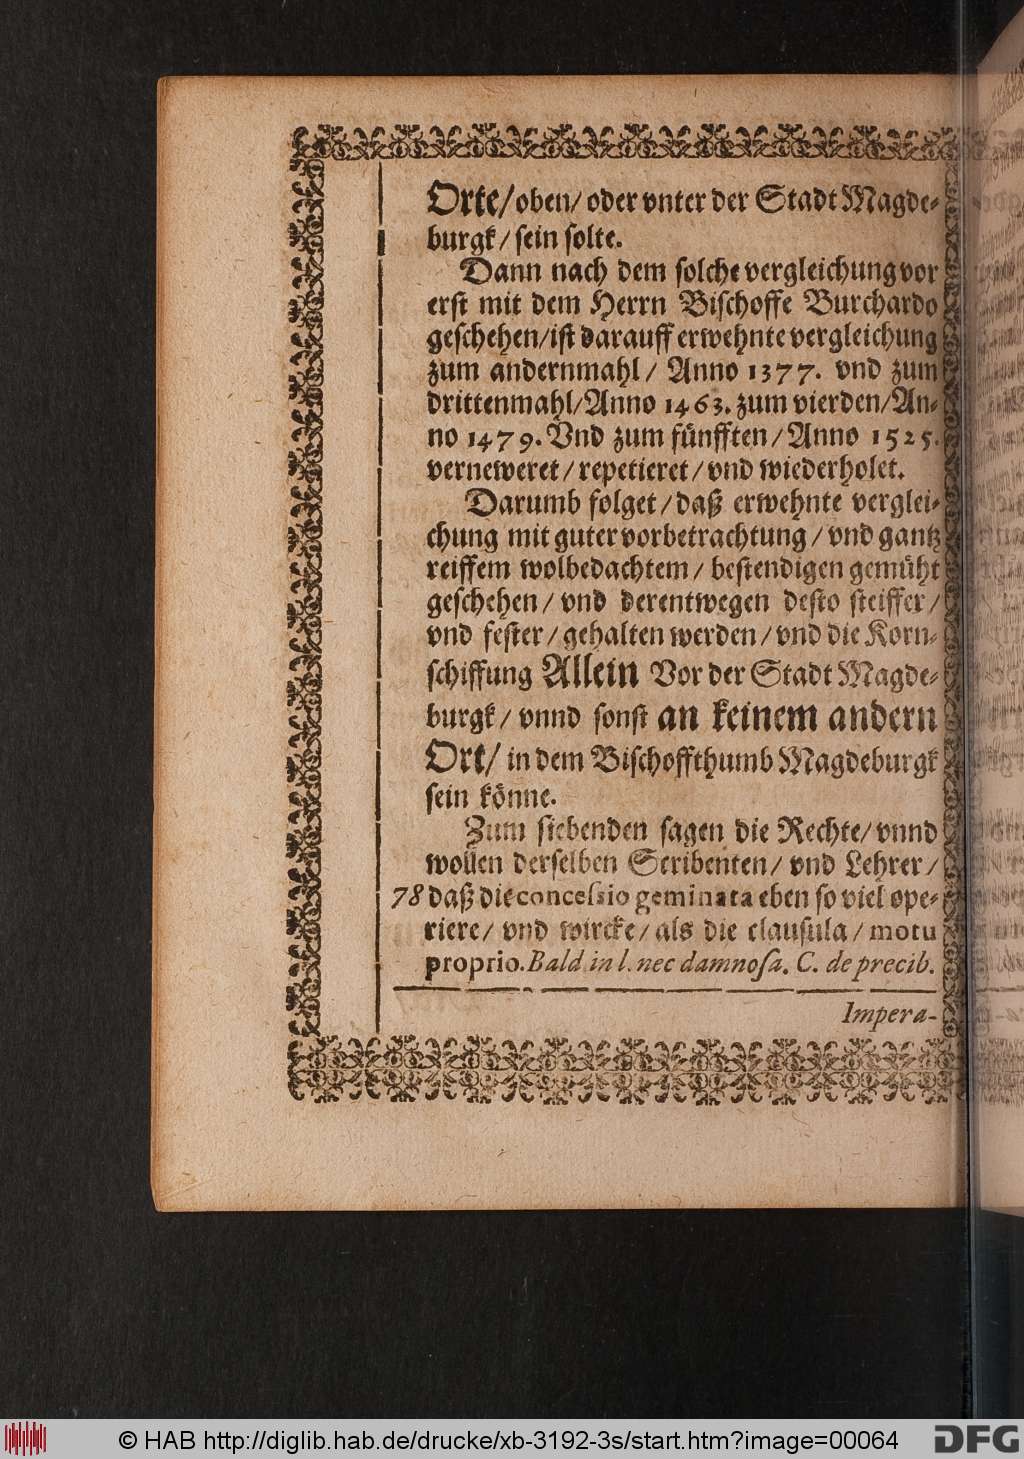 Orte/ oben/ oder vnter der Stadt Magde-
burgk/ sein solte.
Dann nach dem solche vergleichung vor
erst mit dem Herrn Bischoffe Burchardo
geschehen/ ist darauff erwehnte vergleichung
zum andernmahl/ Anno 1377. vnd zum
drittenmahl/ Anno 1463. zum vierden/ An-
no 1479. Vnd zum fünfften/ Anno 1525.
verneweret/ repetieret/ vnd wiederholet.
Darumb folget/ daß erwehnte verglei-
chung mit guter vorbetrachtung/ vnd gantz
reiffem wolbedachtem/ bestendigen gemüht
geschehen/ vnd derentwegen desto steiffer/
vnd fester/ gehalten werden/ vnd die Korn-
schiffung Allein Vor der Stadt Magde-
burgk/ vnnd sonst an keinem andern
Ort/ in dem Bischoffthumb Magdeburgk
sein könne.
Zum siebenden sagen die Rechte/ vnnd
wollen derselben Scribenten/ vnd Lehrer/
78 daß die concessio geminata eben so viel ope-
riere/ vnd wircke/ als die clausula/ motu
proprio. Bald. in l. nec damnosa. C. de precib.
Impera-
© HAB http://diglib.hab.de/drucke/xb-3192-3s/start.htm?image=00064
DFG